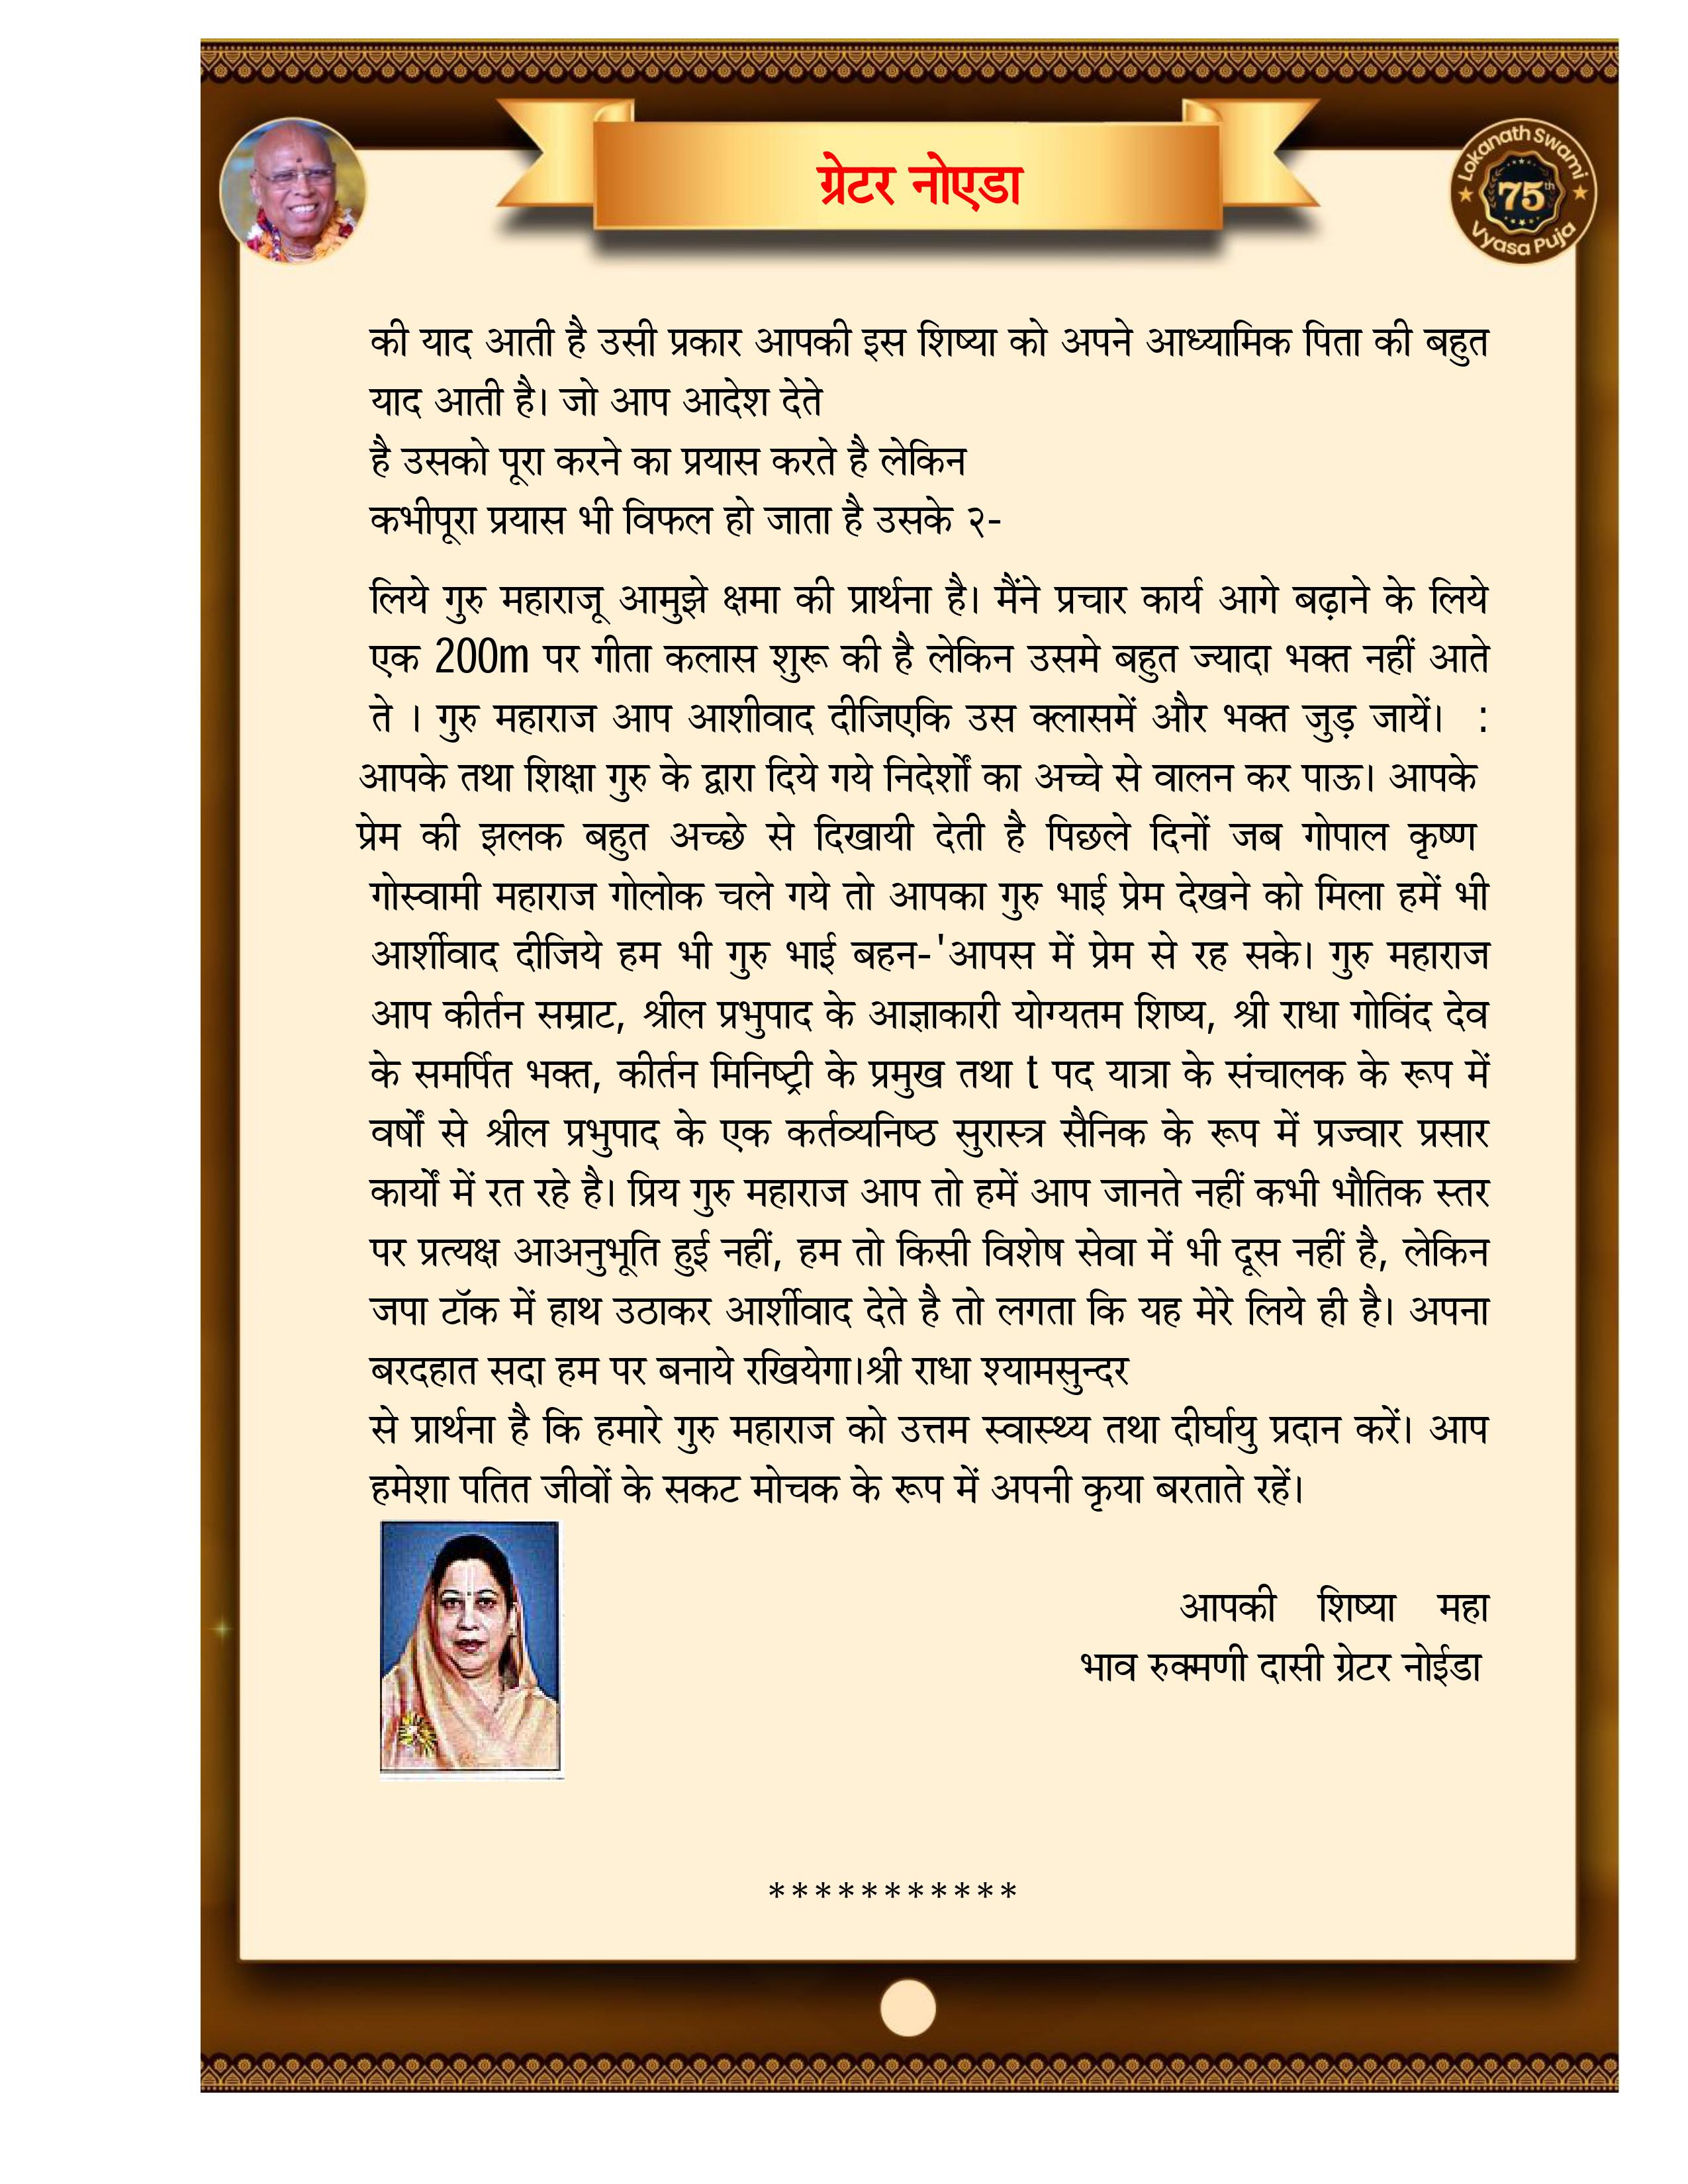 ग्रेटर नोएडा
Lokanath Swami
75th
Vyasa Puja
की याद आती है उसी प्रकार आपकी इस शिष्या को अपने आध्यामिक पिता की बहुत
याद आती है। जो आप आदेश देते
है उसको पूरा करने का प्रयास करते है लेकिन
कभीपूरा प्रयास भी विफल हो जाता है उसके २-
लिये गुरु महाराजू आमुझे क्षमा की प्रार्थना है। मैंने प्रचार कार्य आगे बढ़ाने के लिये
एक 200m पर गीता कलास शुरू की है लेकिन उसमे बहुत ज्यादा भक्त नहीं आते
ते । गुरु महाराज आप आशीवाद दीजिएकि उस क्लासमें और भक्त जुड़ जायें। :
आपके तथा शिक्षा गुरु के द्वारा दिये गये निदेर्शों का अच्चे से वालन कर पाऊ। आपके
प्रेम की झलक बहुत अच्छे से दिखायी देती है पिछले दिनों जब गोपाल कृष्ण
गोस्वामी महाराज गोलोक चले गये तो आपका गुरु भाई प्रेम देखने को मिला हमें भी
आर्शीवाद दीजिये हम भी गुरु भाई बहन-'आपस में प्रेम से रह सके। गुरु महाराज
आप कीर्तन सम्राट, श्रील प्रभुपाद के आज्ञाकारी योग्यतम शिष्य, श्री राधा गोविंद देव
के समर्पित भक्त, कीर्तन मिनिष्ट्री के प्रमुख तथा t पद यात्रा के संचालक के रूप में
वर्षों से श्रील प्रभुपाद के एक कर्तव्यनिष्ठ सुरास्त्र सैनिक के रूप में प्रज्वार प्रसार
कार्यों में रत रहे है। प्रिय गुरु महाराज आप तो हमें आप जानते नहीं कभी भौतिक स्तर
पर प्रत्यक्ष आअनुभूति हुई नहीं, हम तो किसी विशेष सेवा में भी दूस नहीं है, लेकिन
जपा टॉक में हाथ उठाकर आर्शीवाद देते है तो लगता कि यह मेरे लिये ही है। अपना
बरदहात सदा हम पर बनाये रखियेगा।श्री राधा श्यामसुन्दर
से प्रार्थना है कि हमारे गुरु महाराज को उत्तम स्वास्थ्य तथा दीर्घायु प्रदान करें। आप
हमेशा पतित जीवों के सकट मोचक के रूप में अपनी कृया बरताते रहें।
आपकी शिष्या महा
भाव रुक्मणी दासी ग्रेटर नोईडा
***********